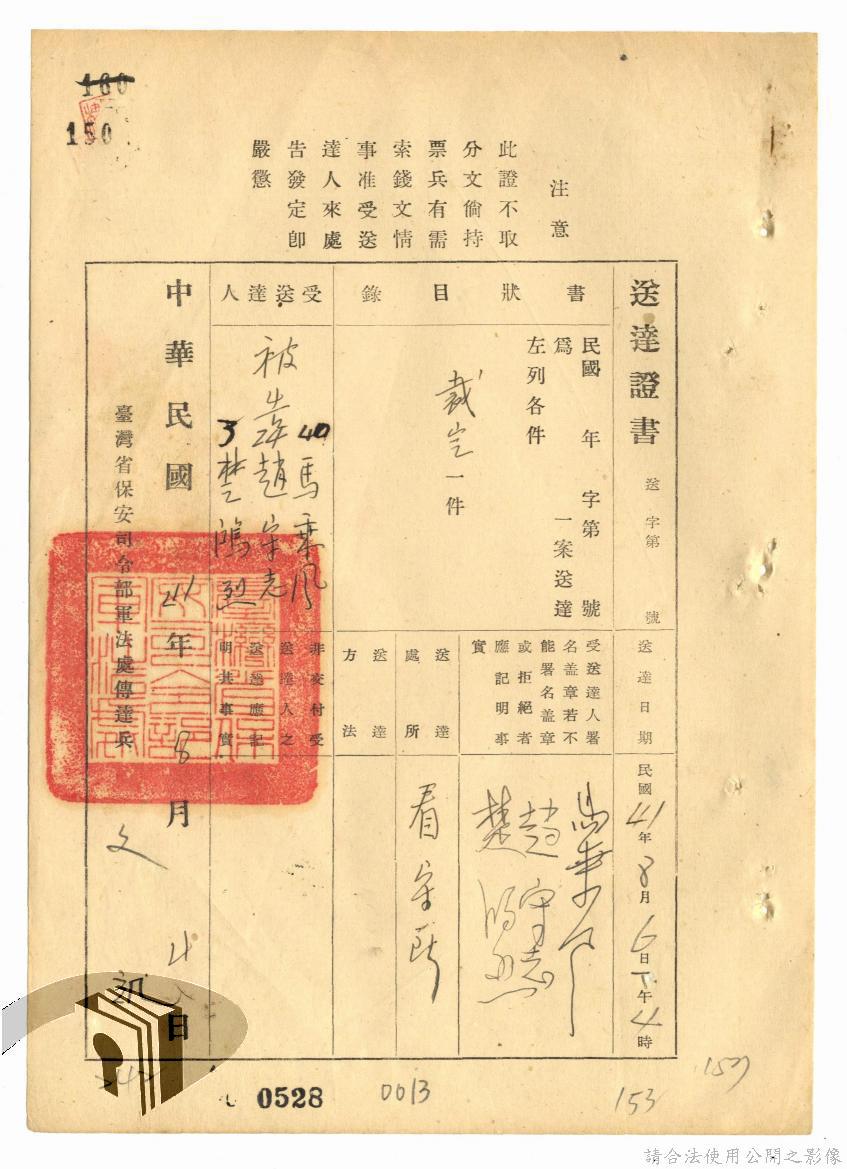 180
150
注意
此證不取
分文倘持
票兵有需
索錢文情
事准受送
達人來處
告發定卽
嚴懲
送達證書
送字第 號
書狀目錄
民國 年 字第 號
爲 一案送達
左列各件
裁定一件
受送達人
被告
40馬乘風
趙守志
3楚鴻烈
送達日期
民國41年8月6日下午4時
受送達人署
名盖章若不
能署名盖章
或拒絕者
應記明事
實
馬乘風
趙守志
楚鴻烈
送達處所
看守所
送達方法
非交付受
送達人之
送達應記
明其事實
中華民國41年8月 日
臺灣省保安司令部軍法處傳達兵
0528
0013
153
157
請合法使用公開之影像